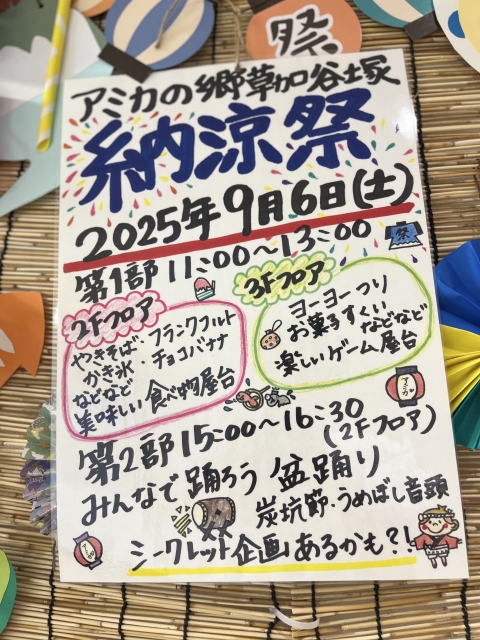 祭
アミカの郷草加谷塚
納涼祭
2025年9月6日(土)
第1部 11:00〜13:00
祭
2Fフロア
やきそば・フランクフルト
かき氷 チョコバナナ
などなど
美味しい食べ物屋台
3Fフロア
ヨーヨーつり
お菓子すくいなどなど
楽しいゲーム屋台
アミカ
第2部 15:00〜16:30
(2Fフロア)
みんなで踊ろう 盆踊り
炭坑節・うめぼし音頭
シークレット企画あるかも?!